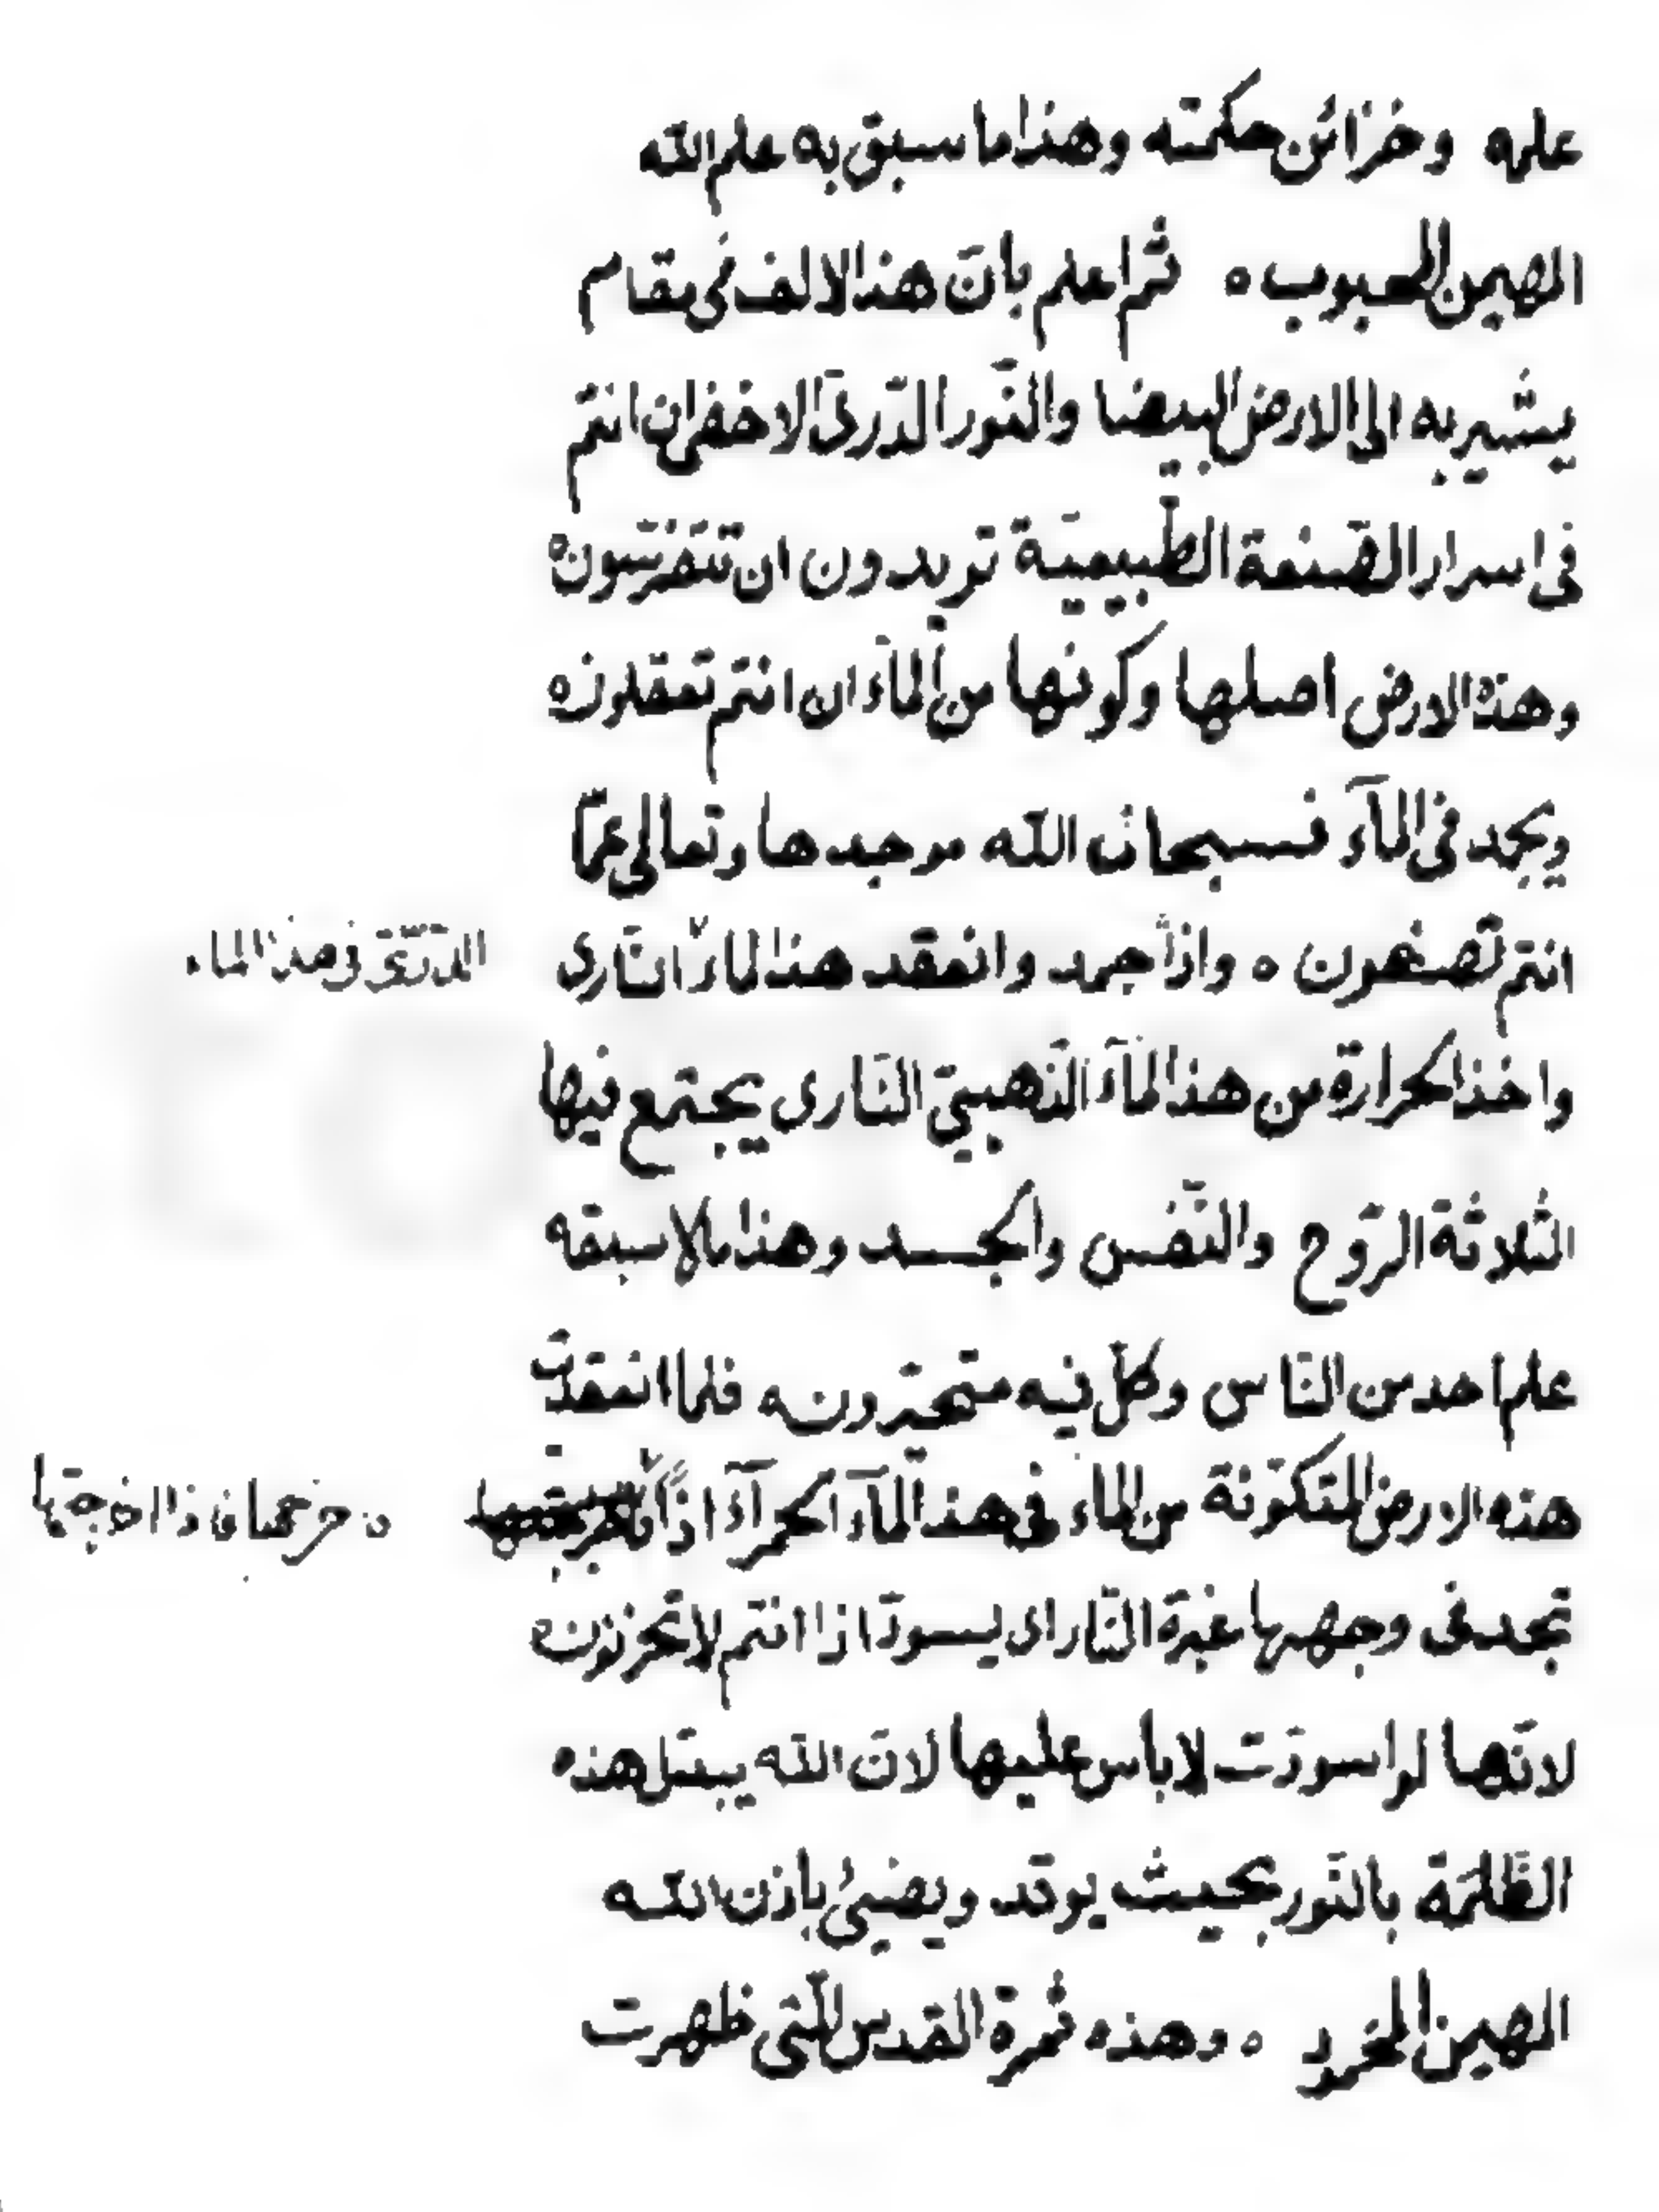 علمه وخزائن حكمته وهذا ما سبق به علم الله
المهيمن المحبوب ه ثم اعلم بانّ هذا الالف فى مقام
يشير به الى الارض البيضا والنّور الدّرىّ الاخضر ان انتم
فى اسرار الصّنعة الطّبيعيّة تريدون ان تتفرّسون ه
وهذه الارض اصلها وكونها من المآء ان انتم تعقلون ه
ويجمد فى المآء فسبحان الله موجدها وتعالى عمّا
انتم تصفون ه واذا جمد وانعقد هذا المآء النّارى
الدّرّىّ فى هذا الماء
واخذ الحرارة من هذا المآء الذّهبىّ النّارى يجتمع فيها
الثّلاثة الرّوح والنّفس والجسد وهذا ما لا سبقه
علم احد من النّاس وكلّ فيه متحيّرون ه فلما انعقدت
هذه الارض المتكوّنة من الماء فى هذا المآء الحمرآء اذاً
تجد فى وجهها غبرة النّار اى يسودّ اذا انتم لا تحزنون
لانّها لو اسودّت لا باس عليها لانّ الله يبدّل هذه
الظّلمة بالنّور بحيث يوقد ويضيئ باذن الله
المهيمن ه وهذه ثمرة القدس الّتى ظهرت